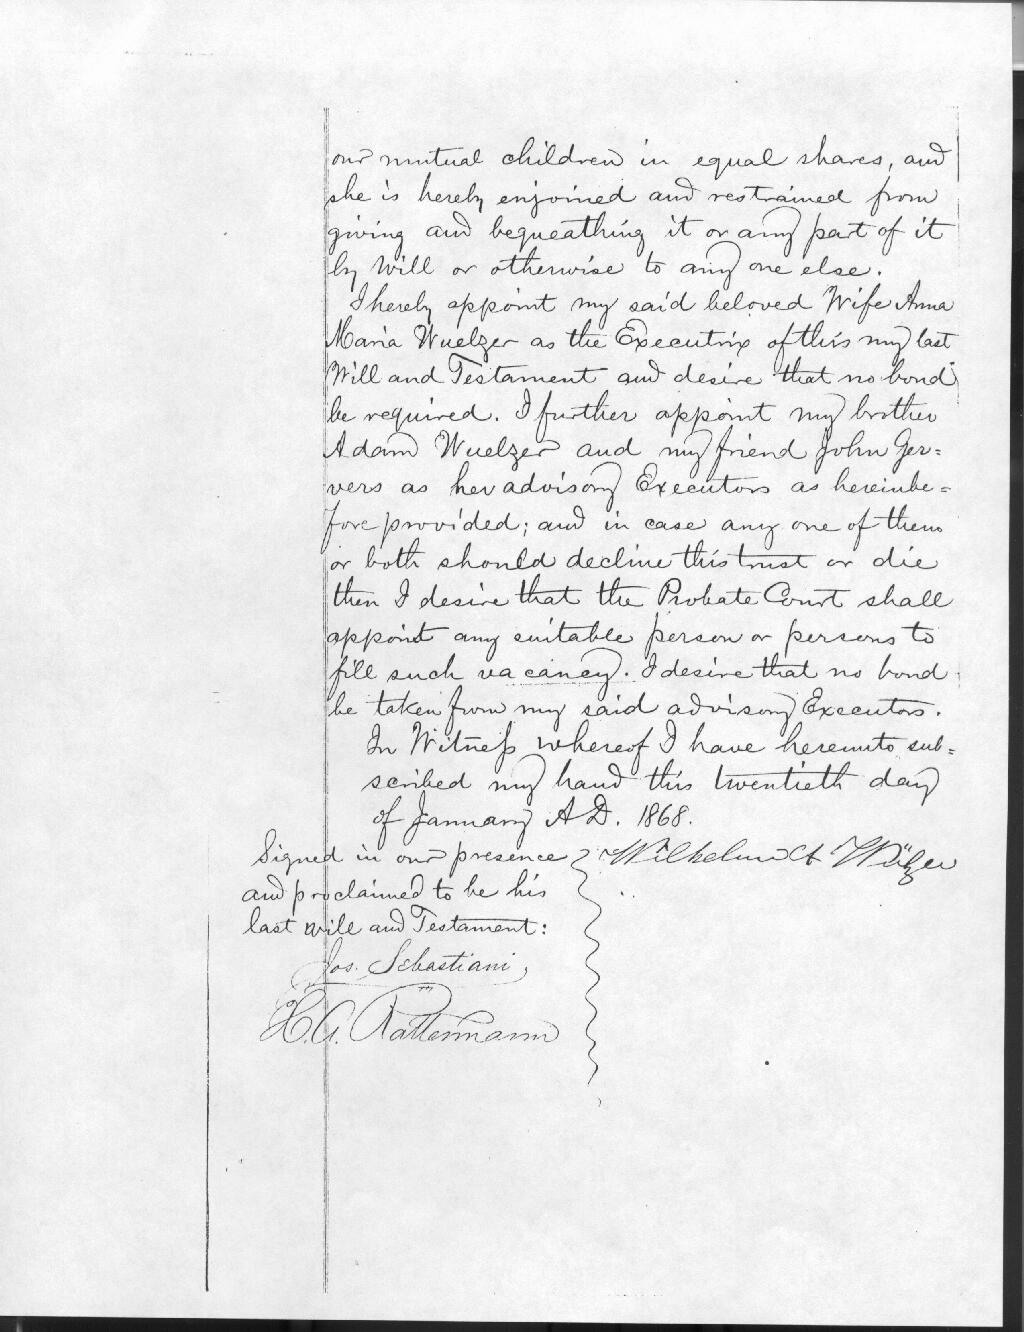 our mutual children in equal shares, and
she is hereby enjoined and restrained from
giving and bequeathing it or any part of it
by Will or otherwise to any one else.
I hereby appoint my said beloved Wife Anna
Maria Wuelzer as the Executrix of this my last
Will and Testament and desire that no bond
be required. I further appoint my brother
Adam Wuelzer and my friend John Ger=
vers as her advisory Executors as hereinbe=
fore provided; and in case any one of them
or both should decline this trust or die
then I desire that the Probate Court shall
appoint any suitable person or persons to
fill such vacancy. I desire that no bond
be taken from my said advisory Executors.
In Witness whereof I have hereunto sub=
scribed my hand this twentieth day
of January A.D. 1868.
Signed in our presence
Wilhelm Wülzer
and proclaimed to be his
last will and Testament:
Jos. Sebastiani,
H. A. Rattermann